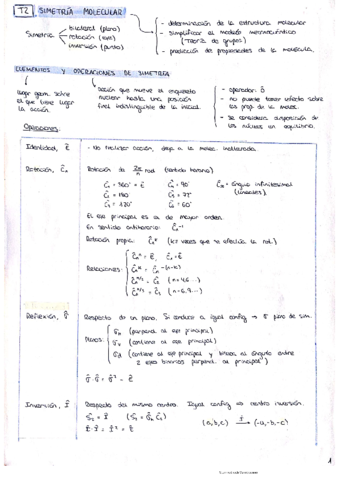 T2 SIMETRÍA MOLECULAR
Simetría
bilateral (plano)
rotación (eje)
inversión (punto)
- determinación de la estructura molecular
- simplificar el modelo mecanocuántico
(Teoría de grupos)
- predicción de propiedades de la molécula.
ELEMENTOS Y OPERACIONES DE SIMETRÍA
lugar geom. sobre
el que tiene lugar
la acción.
acción que mueve el esqueleto
nuclear hasta una posición
final indistinguible de la inicial.
- operador: Ô
- no puede tener efecto sobre
las prop. de la molec.
- se considera disposición de
los núcleos en equilibrio.
Operaciones.
Identidad, Ê
- No realizar acción, deja a la molec. inalterada.
Rotación, Ĉn
Rotación de 2π/n rad (sentido horario)
Ĉ1 = 360° = Ê
Ĉ2 = 180
Ĉ3 = 120°
Ĉ4 = 90°
Ĉ5 = 72
Ĉ6 = 60°
Ĉ∞ = ángulo infinitesimal
(lineales)
El eje principal es el de mayor orden.
En sentido antihorario: Ĉn⁻¹
Rotación propia: Ĉnᵏ (k: veces que se efectúa la rot.)
Relaciones:
(n=4,6...)
(n=6,9...)
Reflexión, σ̂
Respecto de un plano. Si conduce a igual config → σ plano de sim.
Planos:
σh (perpend. al eje principal)
σv (contiene al eje principal)
σd (contiene al eje principal y bisecа el ángulo entre
2 ejes binarios perpend. al principal)
σ̂·σ̂ = σ̂² = Ê
Inversión, Î
Respecto del mismo centro. Igual config ⟹ centro inversión.
Î·Î = Î² = Ê
(a,b,c) → (-a,-b,-c)
1